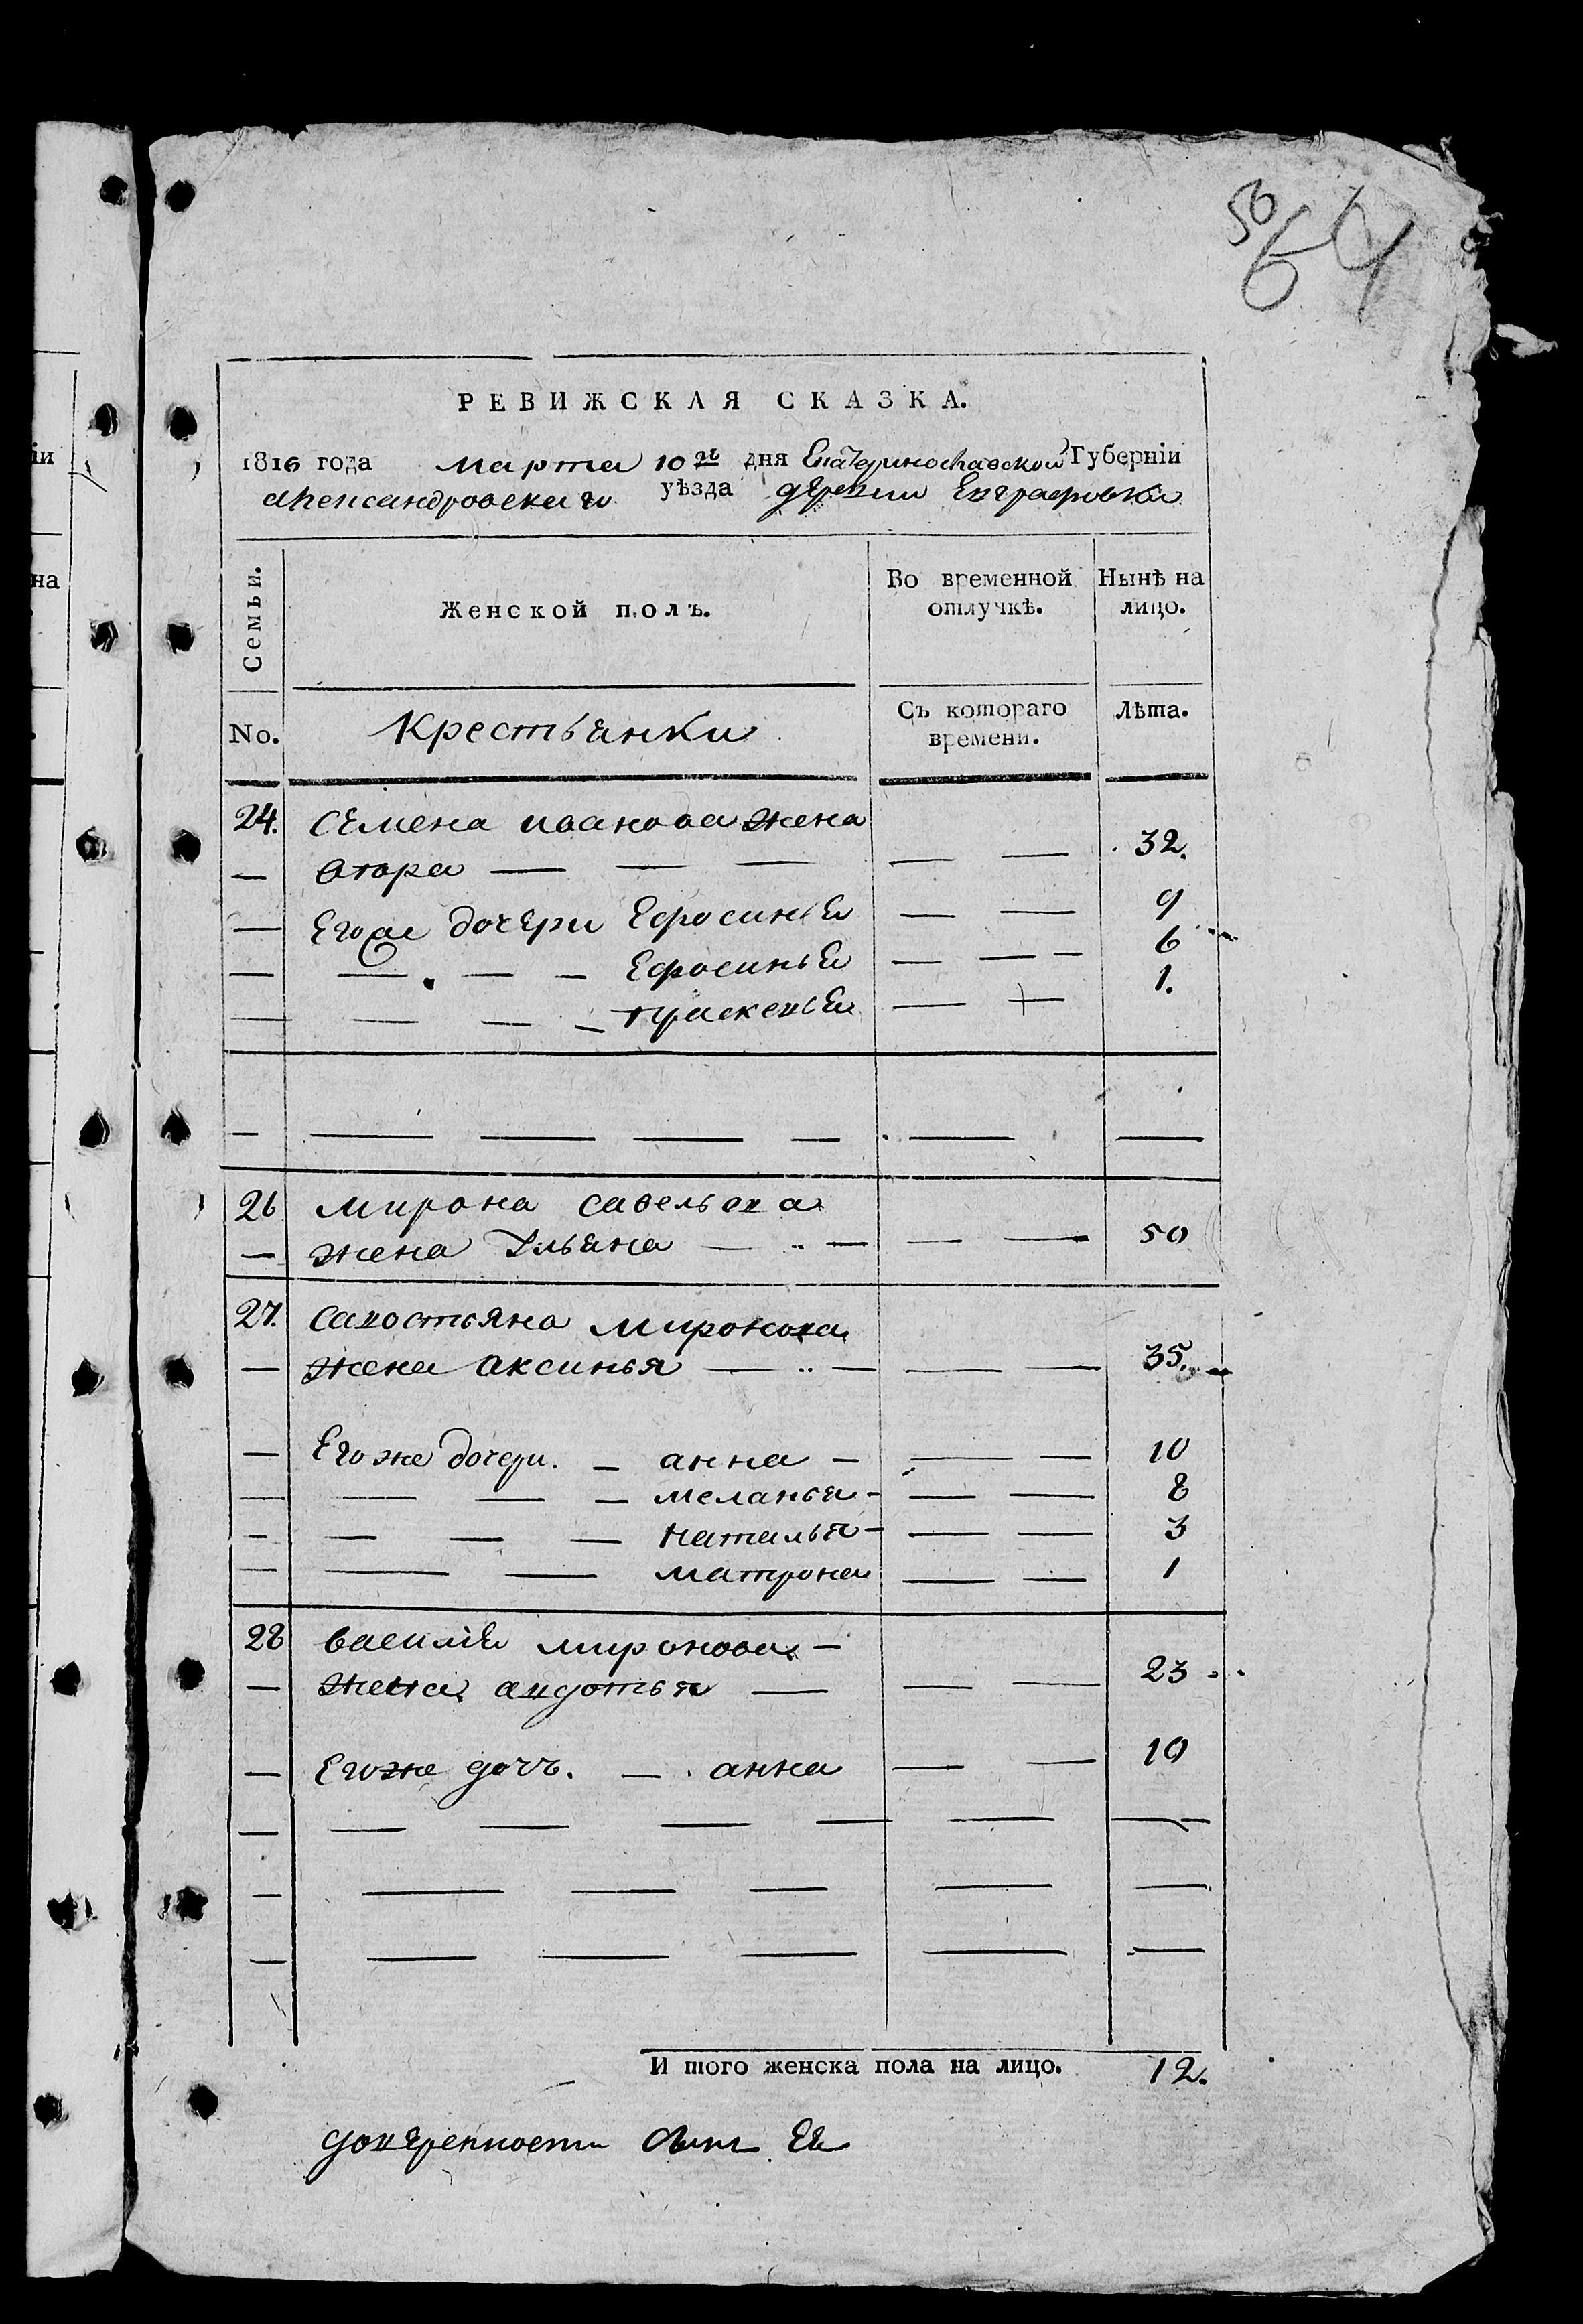 56
64
РЕВИЖСКАЯ СКАЗКА.
1816 года марта 10го дня Екатеринославской Губерніи
александровскаго уѣзда деревни Евграфовки
Семьи.
Женской полъ.
Во временной отлучкѣ.
Нынѣ на лицо.
No.
Крестьянки
Съ котораго времени.
Лѣта.
24. Семена иванова жена
втора 32.
Его же дочери Ефросинья 9
Ефросинья 6
прасковья 1.
26 мирона савельева
жена Ульяна 50
27. савостьяна миронова
жена аксинья 35.
Его же дочери. анна 10
меланья 8
наталья 3
матрона 1
28 василія миронова
жена авдотья 23
Егоже дочь. анна 10
И того женска пола на лицо. 12.
доверенности
іи
на